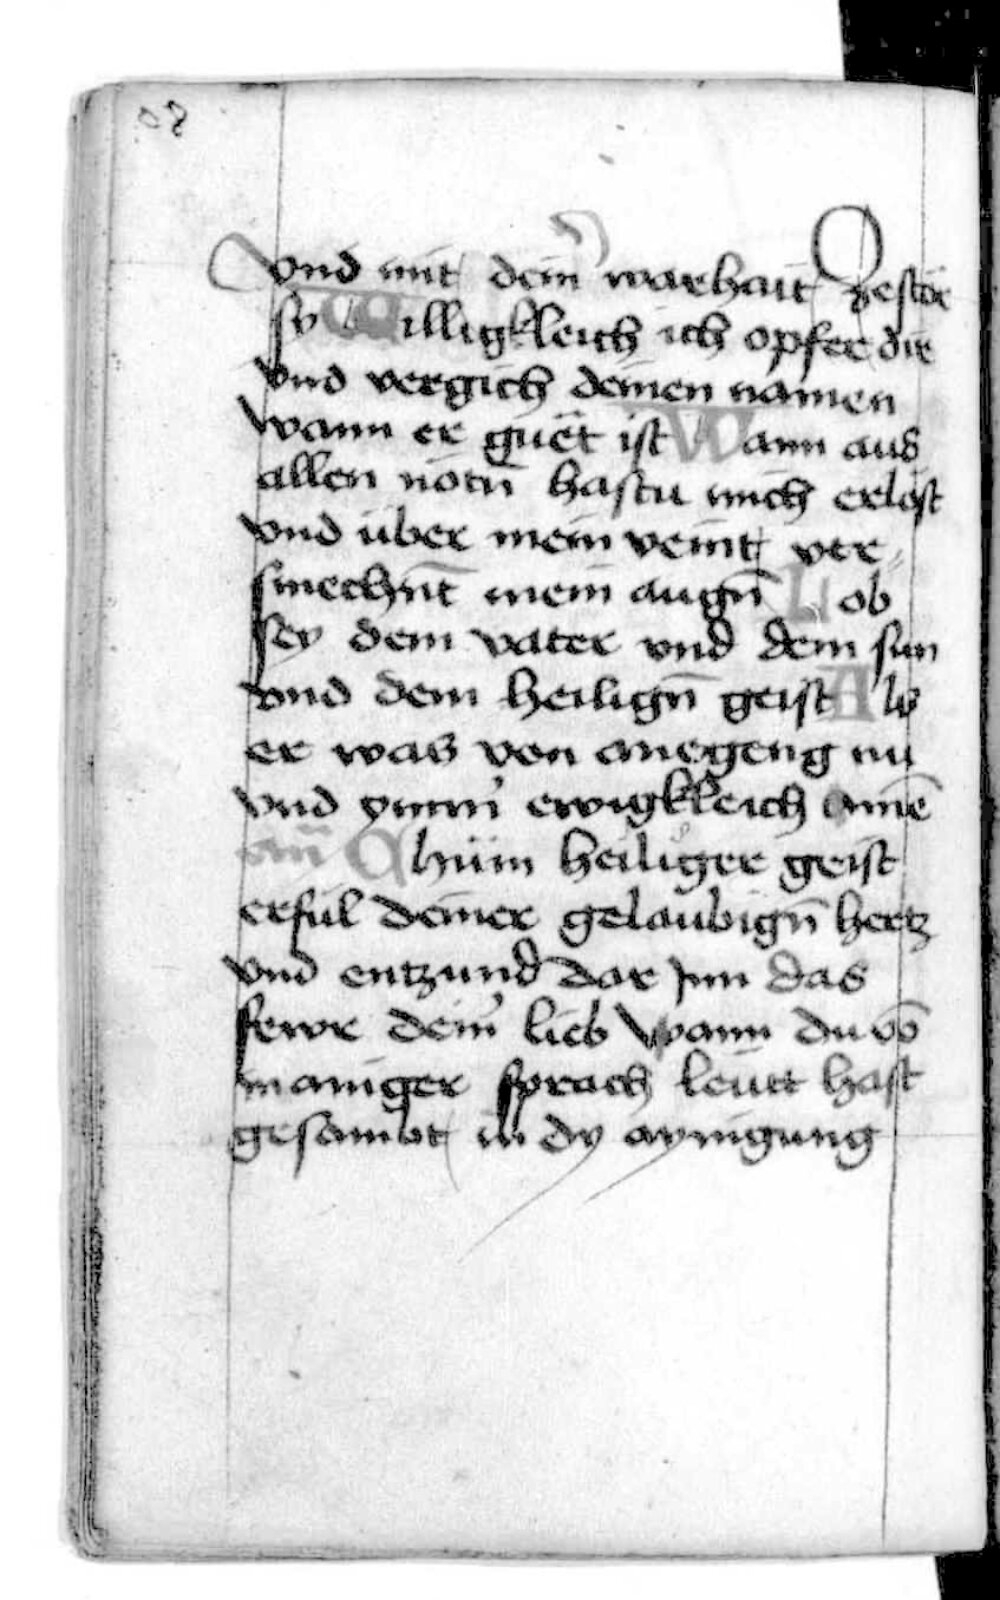 vnd mit dein̄ warhait zestör
sy Willigkleich ich opfer dir
vnd vergich deinen namen
wann er guet ist Wann aus
allen nötn̄ hastu mich erlöst
vnd über mein veint ver⸗
smechnt̄ mein augn̄ Lob
sey dem vater vnd dem sun
vnd dem heilign̄ geist Als
er was von anegeng nu
vnd ymm̄ ewigkleich amē
an̄ Chüm heiliger geist
erfül deiner gelaubign̄ hertz
vnd entzund dar jnn das
fewr dein̄ lieb Wann du vō
maniger sprach leütt hast
gesambt in dy aynigung